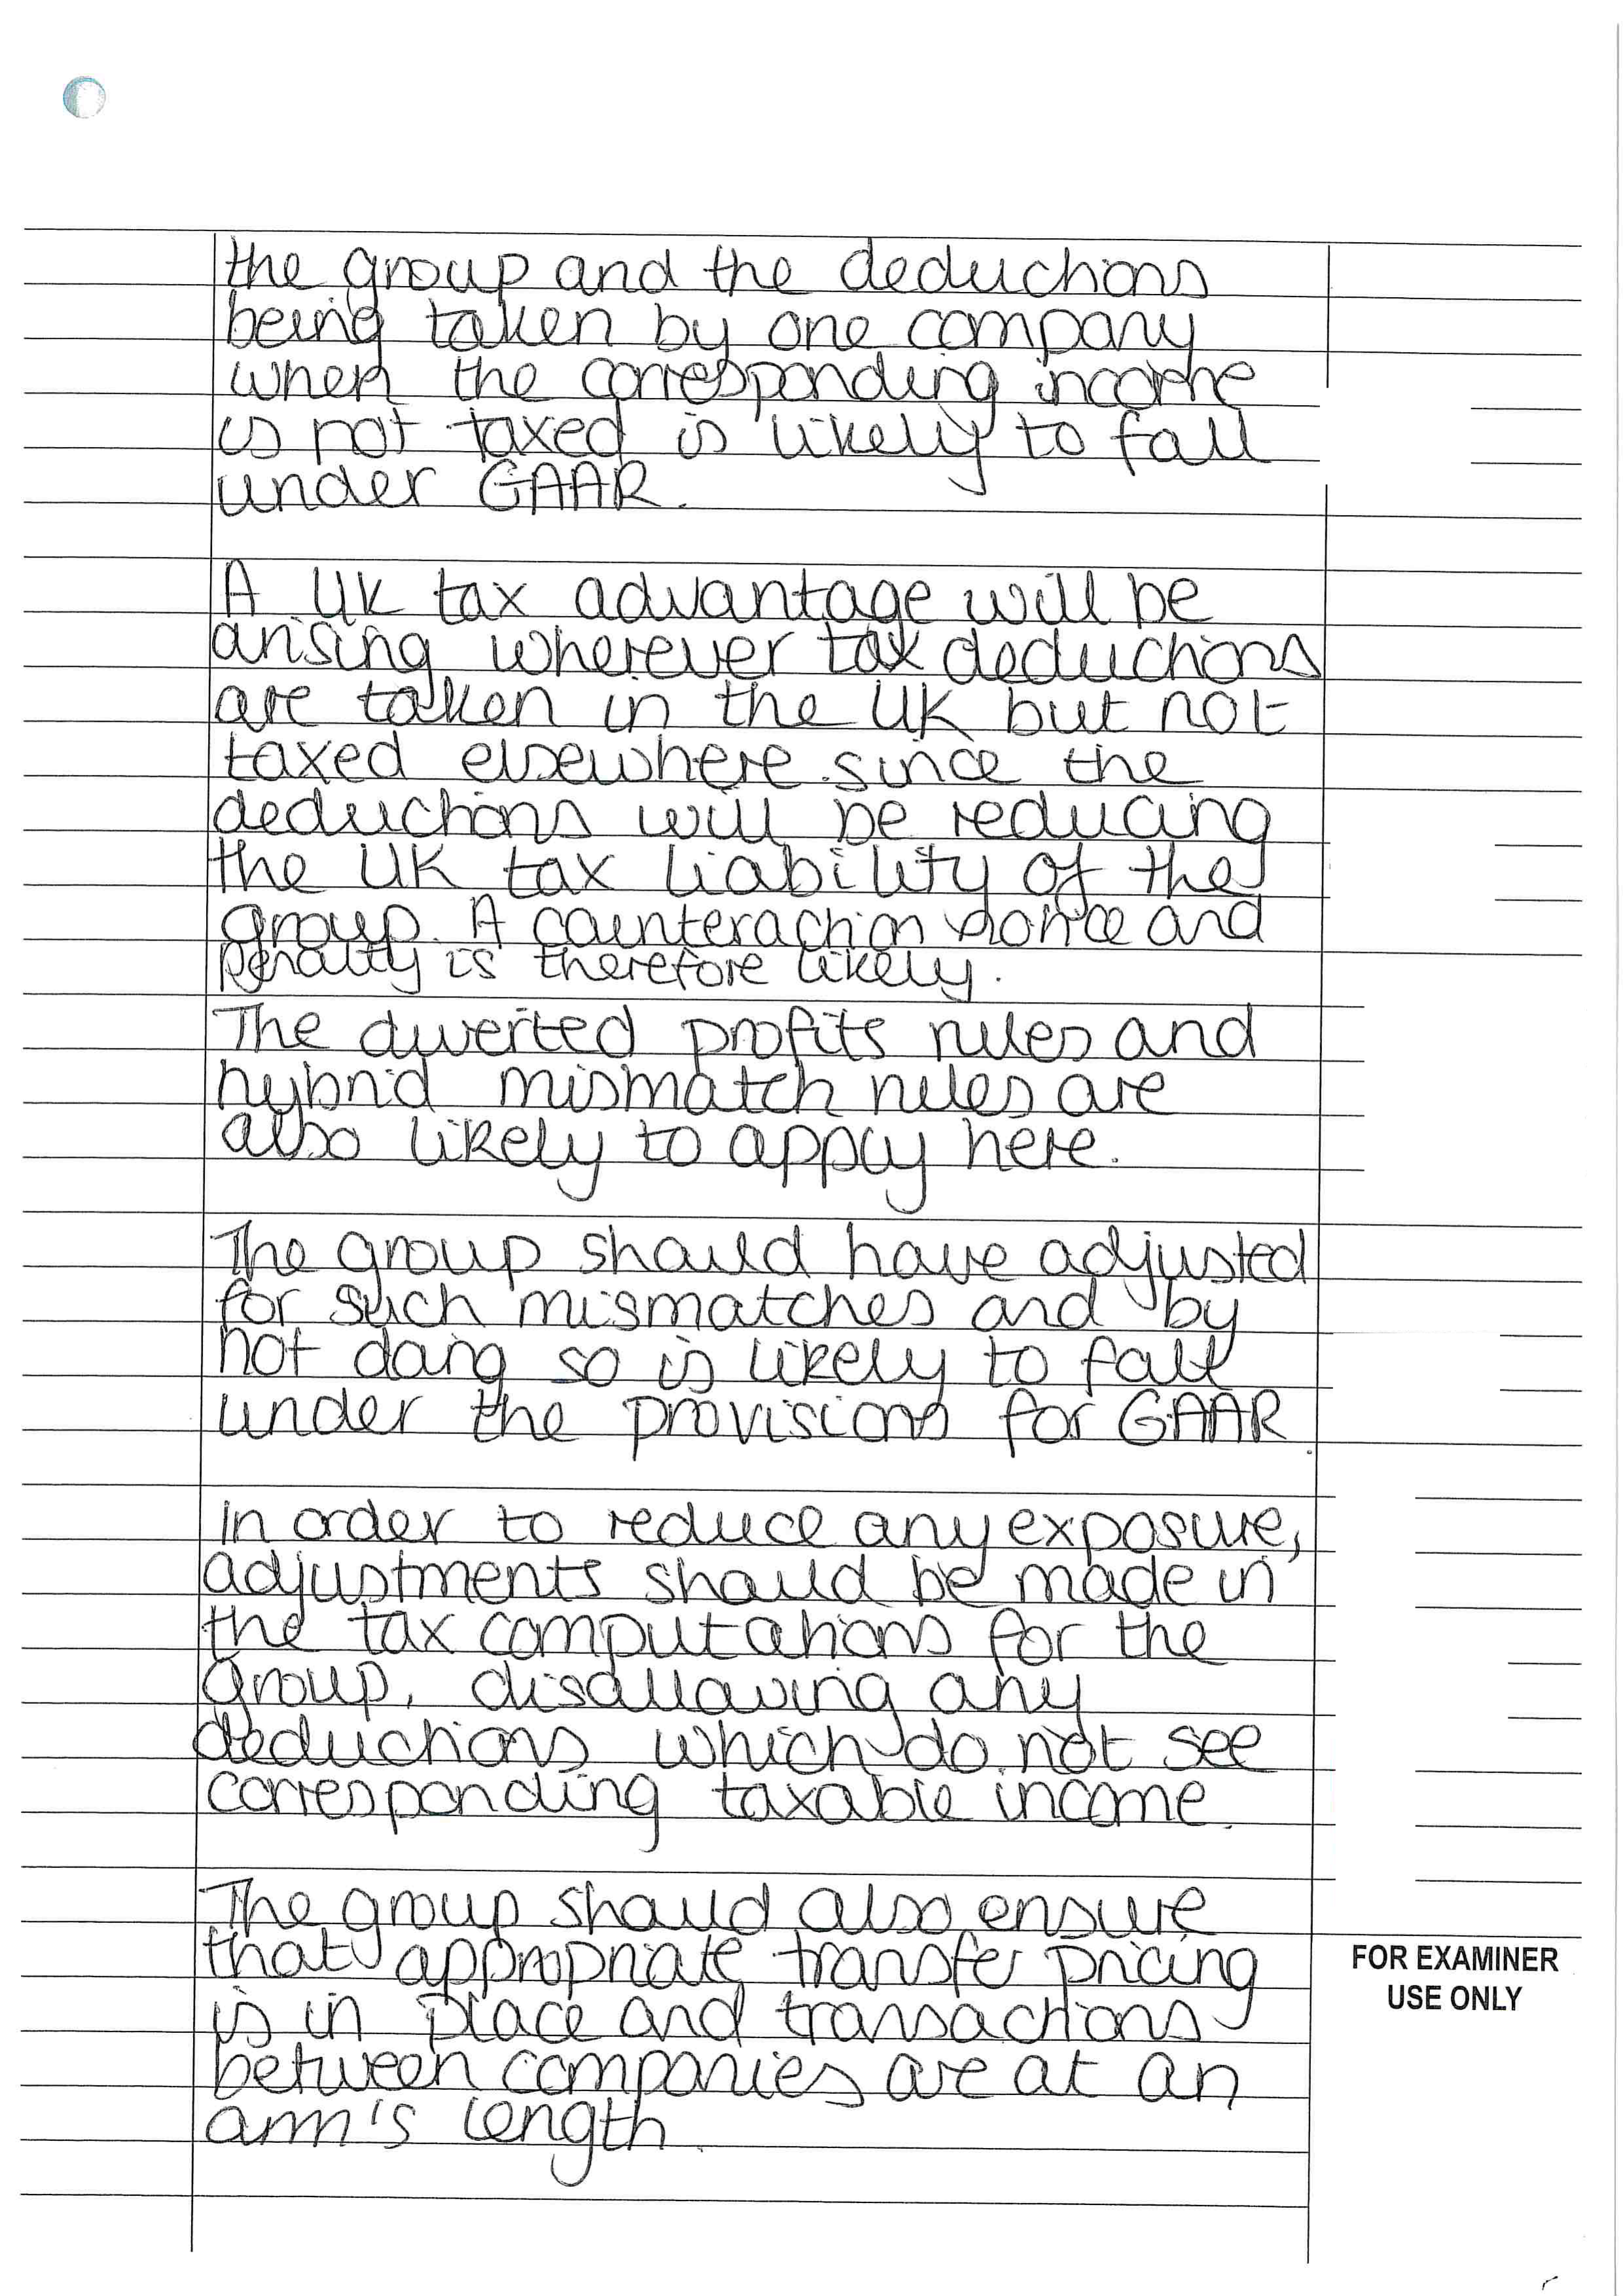 the group and the deductions
being taken by one company
when the corresponding income
is not taxed is likely to fall
under GAAR.
A UK tax advantage will be
arising wherever tax deductions
are taken in the UK but not
taxed elsewhere since the
deductions will be reducing
the UK tax liability of the
group. A counteraction notice and
penalty is therefore likely.
The diverted profits rules and
hybrid mismatch rules are
also likely to apply here.
The group should have adjusted
for such mismatches and by
not doing so is likely to fall
under the provisions for GAAR.
In order to reduce any exposure,
adjustments should be made in
the tax computations for the
group, disallowing any
deductions which do not see
corresponding taxable income.
The group should also ensure
that appropriate transfer pricing
is in place and transactions
between companies are at an
arm's length.
FOR EXAMINER
USE ONLY